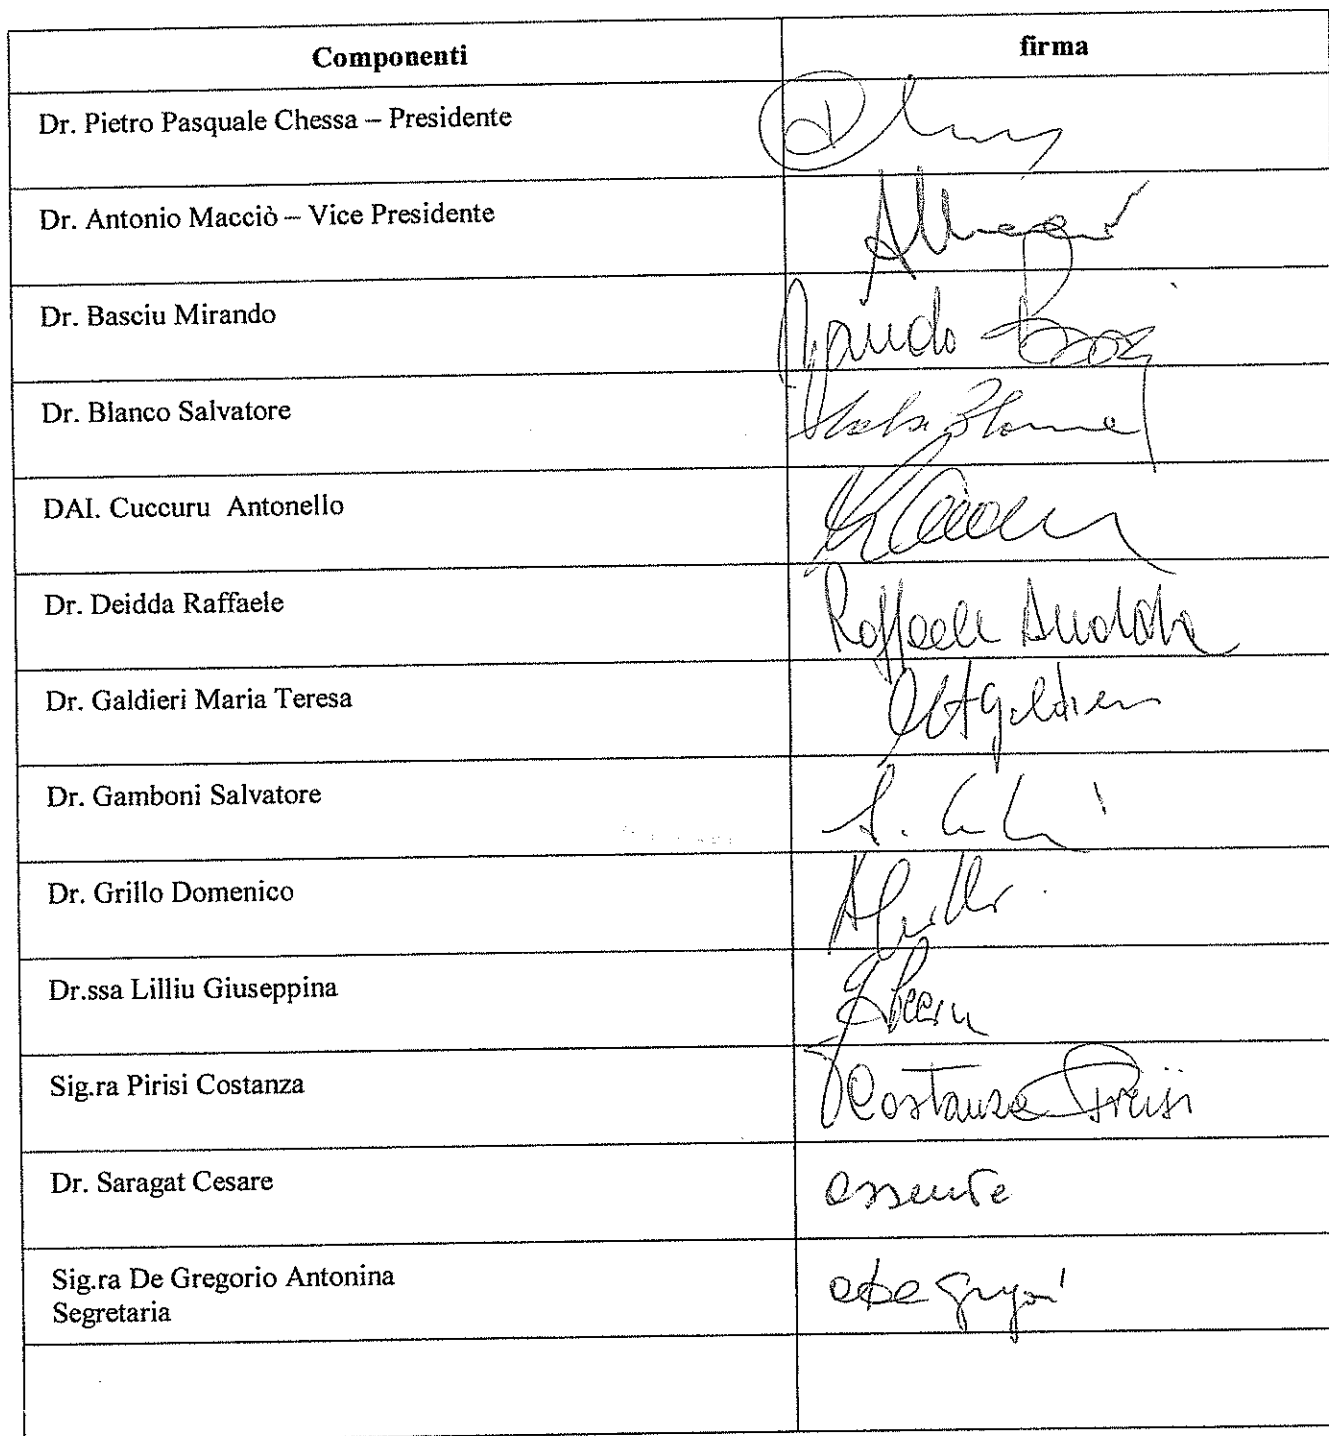 Componenti firma
Dr. Pietro Pasquale Chessa – Presidente
Dr. Antonio Macciò – Vice Presidente
Dr. Basciu Mirando
Dr. Blanco Salvatore
DAI. Cuccuru Antonello
Dr. Deidda Raffaele Raffaele Deidda
Dr. Galdieri Maria Teresa
Dr. Gamboni Salvatore
Dr. Grillo Domenico
Dr.ssa Lilliu Giuseppina
Sig.ra Pirisi Costanza Costanza Pirisi
Dr. Saragat Cesare assente
Sig.ra De Gregorio Antonina
Segretaria